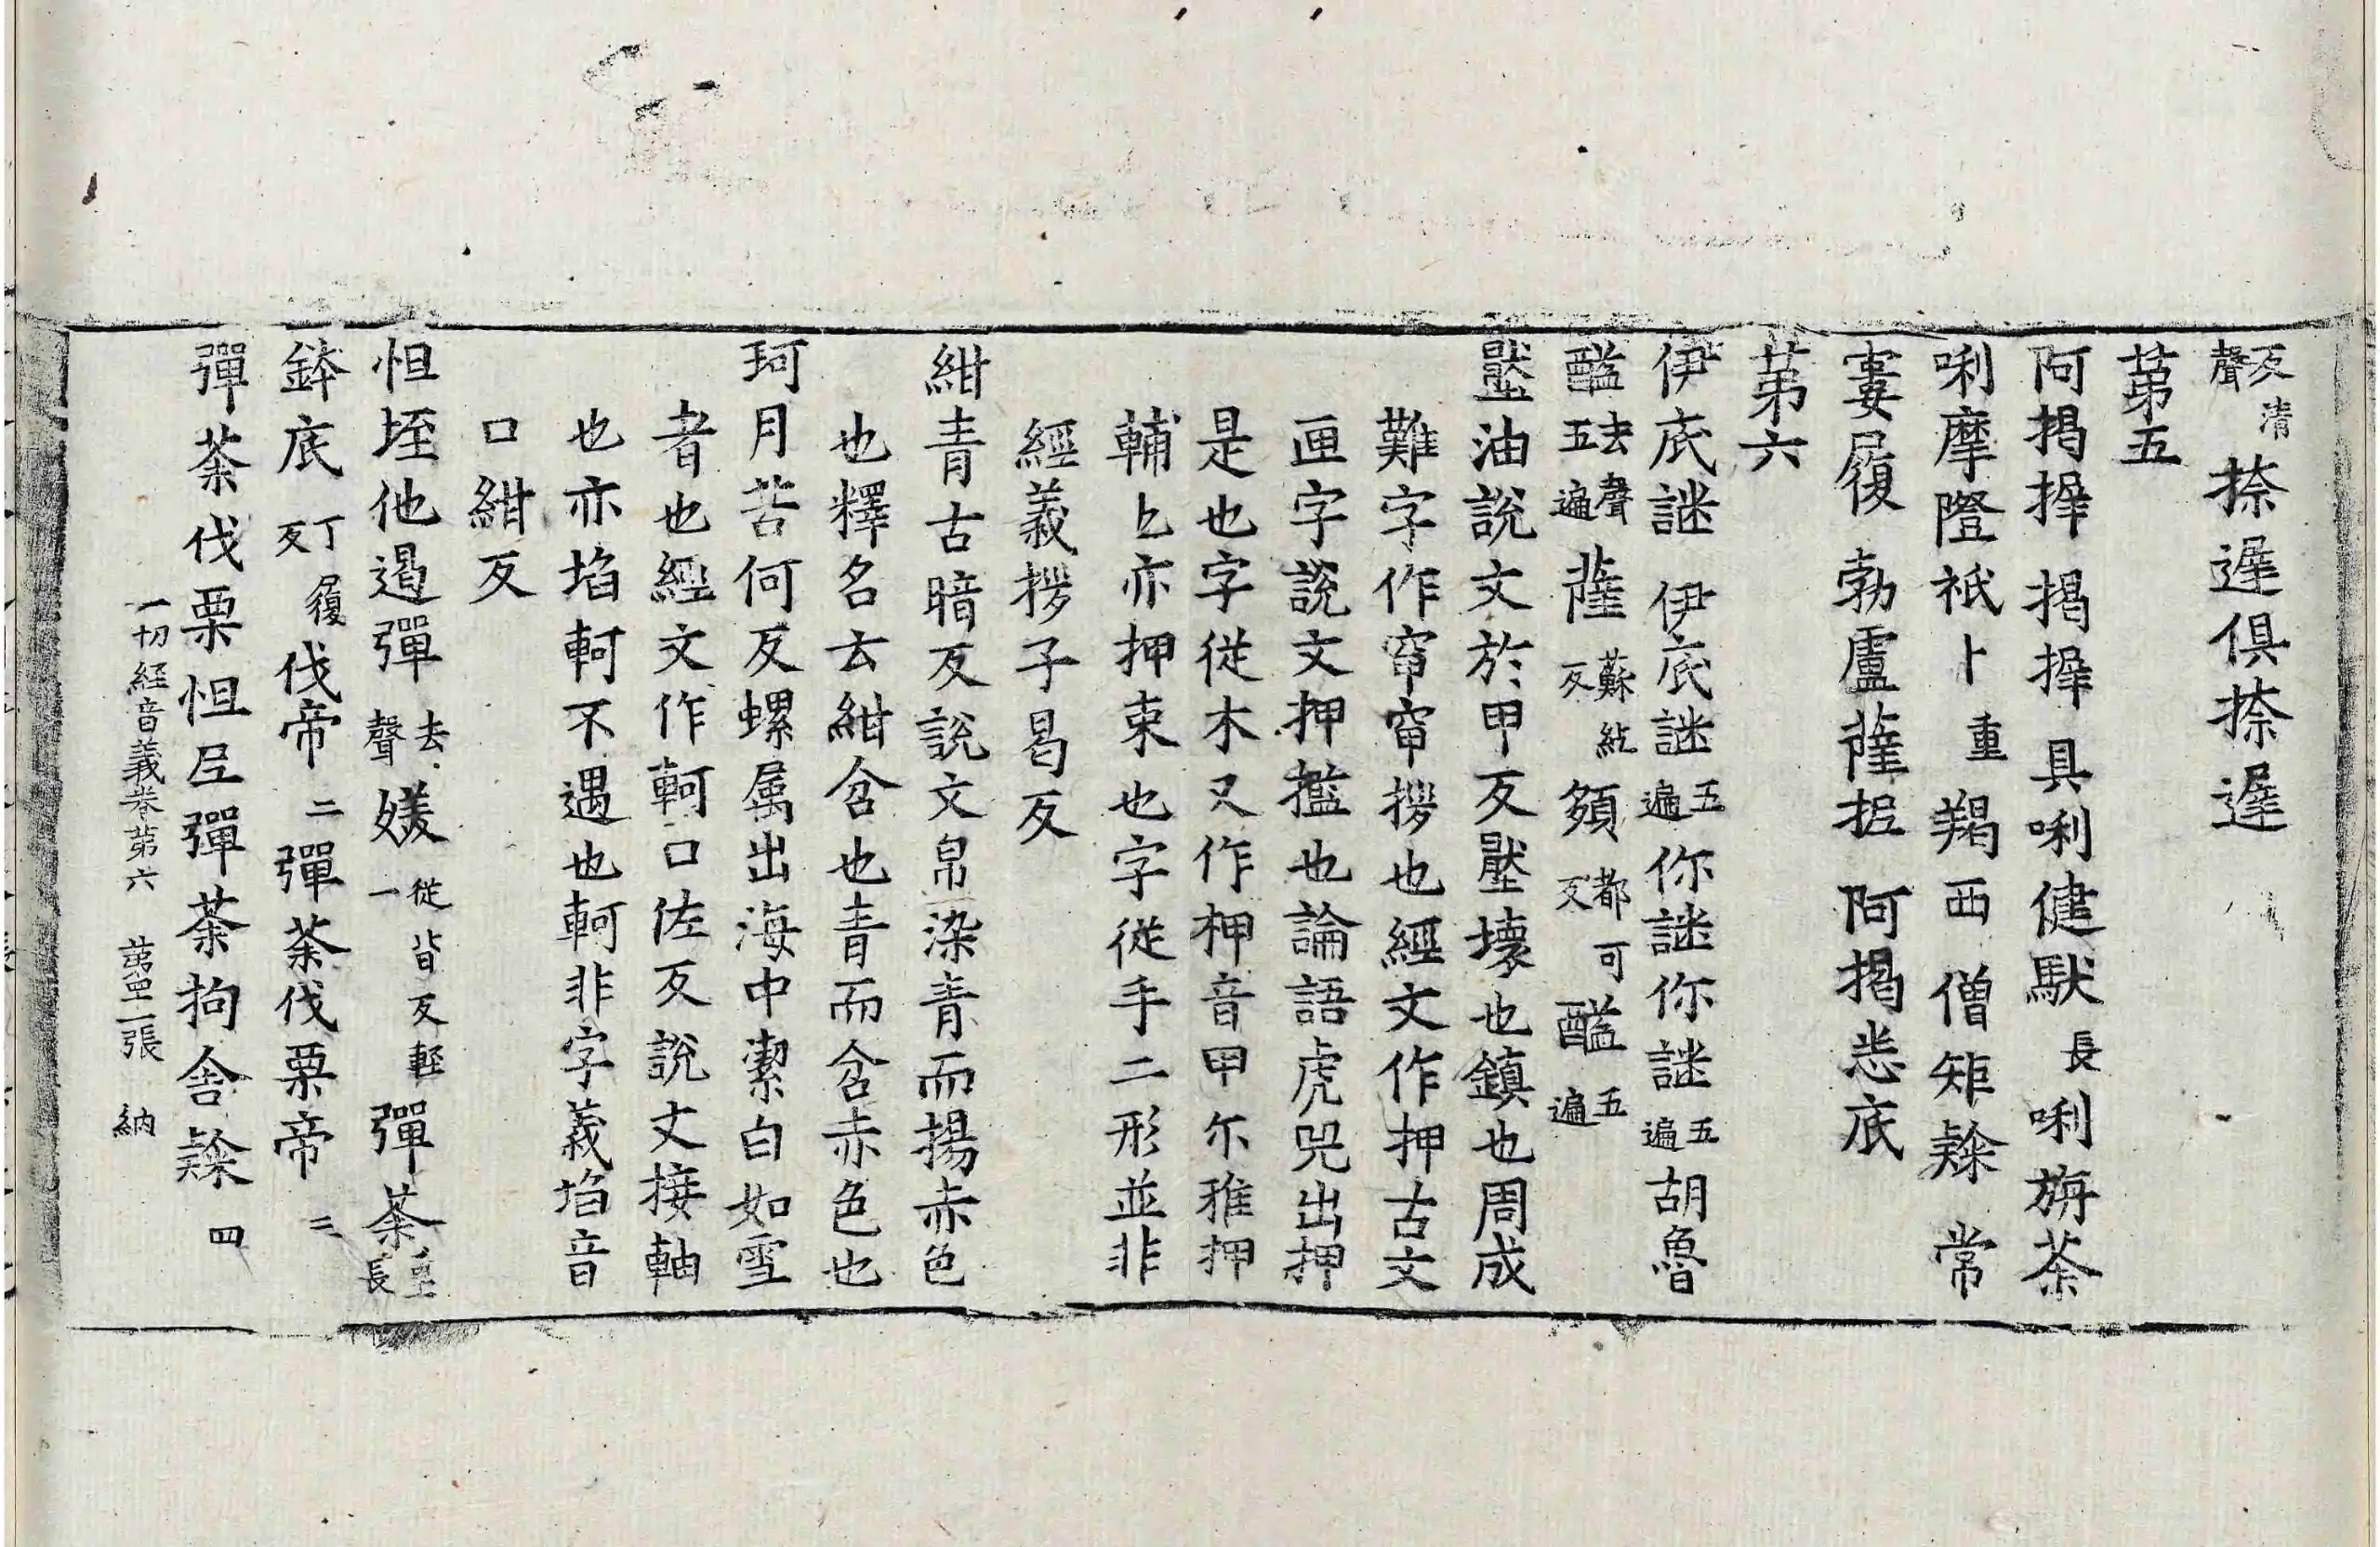 反清聲 捺遲俱捺遲
苐五
阿揭捭 揭捭 具唎健馱長唎旃荼
唎摩隥祇卜重羯西 僧矩㯲 常
婁履 勃盧薩抳 阿揭恙底
苐六
伊底謎 伊底謎五遍你謎你謎五遍胡魯
醯去聲五遍薩蘇紇反頞都可反醯五遍
壓油說文於甲反壓壞也鎮也周成
難字作窄窄拶也經文作押古文
匣字說文押㩜也論語虎兕出押
是也字從木又作柙音甲尓雅押
輔也亦押束也字從手二形並非
經義拶子曷反
紺青古暗反說文帛染青而揚赤色
也釋名云紺含也青而含赤色也
珂月苦何反螺属出海中潔白如雪
者也經文作軻口佐反說文接軸
也亦埳軻不遇也軻非字義埳音
口紺反
怛垤他遏彈去聲媛一從皆反輕彈荼長
鉢底丁履反伐帝二彈荼伐栗帝三
彈荼伐栗怛尼彈荼拘舍㯲四
一切経音義卷苐六 苐二張 納